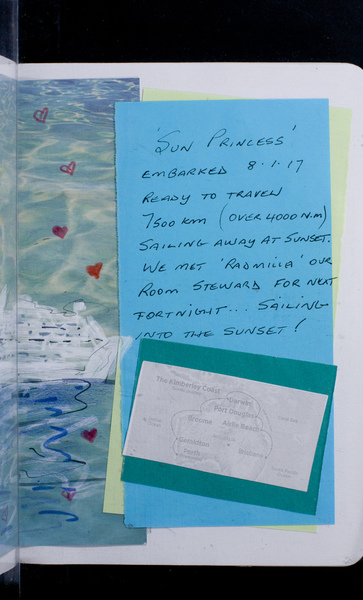 'SUN PRINCESS'
EMBARKED 8.1.17
READY TO TRAVEL
7500 KM (OVER 4000 N.M)
SAILING AWAY AT SUNSET.
WE MET 'RADMILLA' OUR
ROOM STEWARD FOR NEXT
FORTNIGHT... SAILING
INTO THE SUNSET!
The Kimberley Coast
Darwin
Port Douglas
Broome
Airlie Beach
Geraldton
Perth
Brisbane